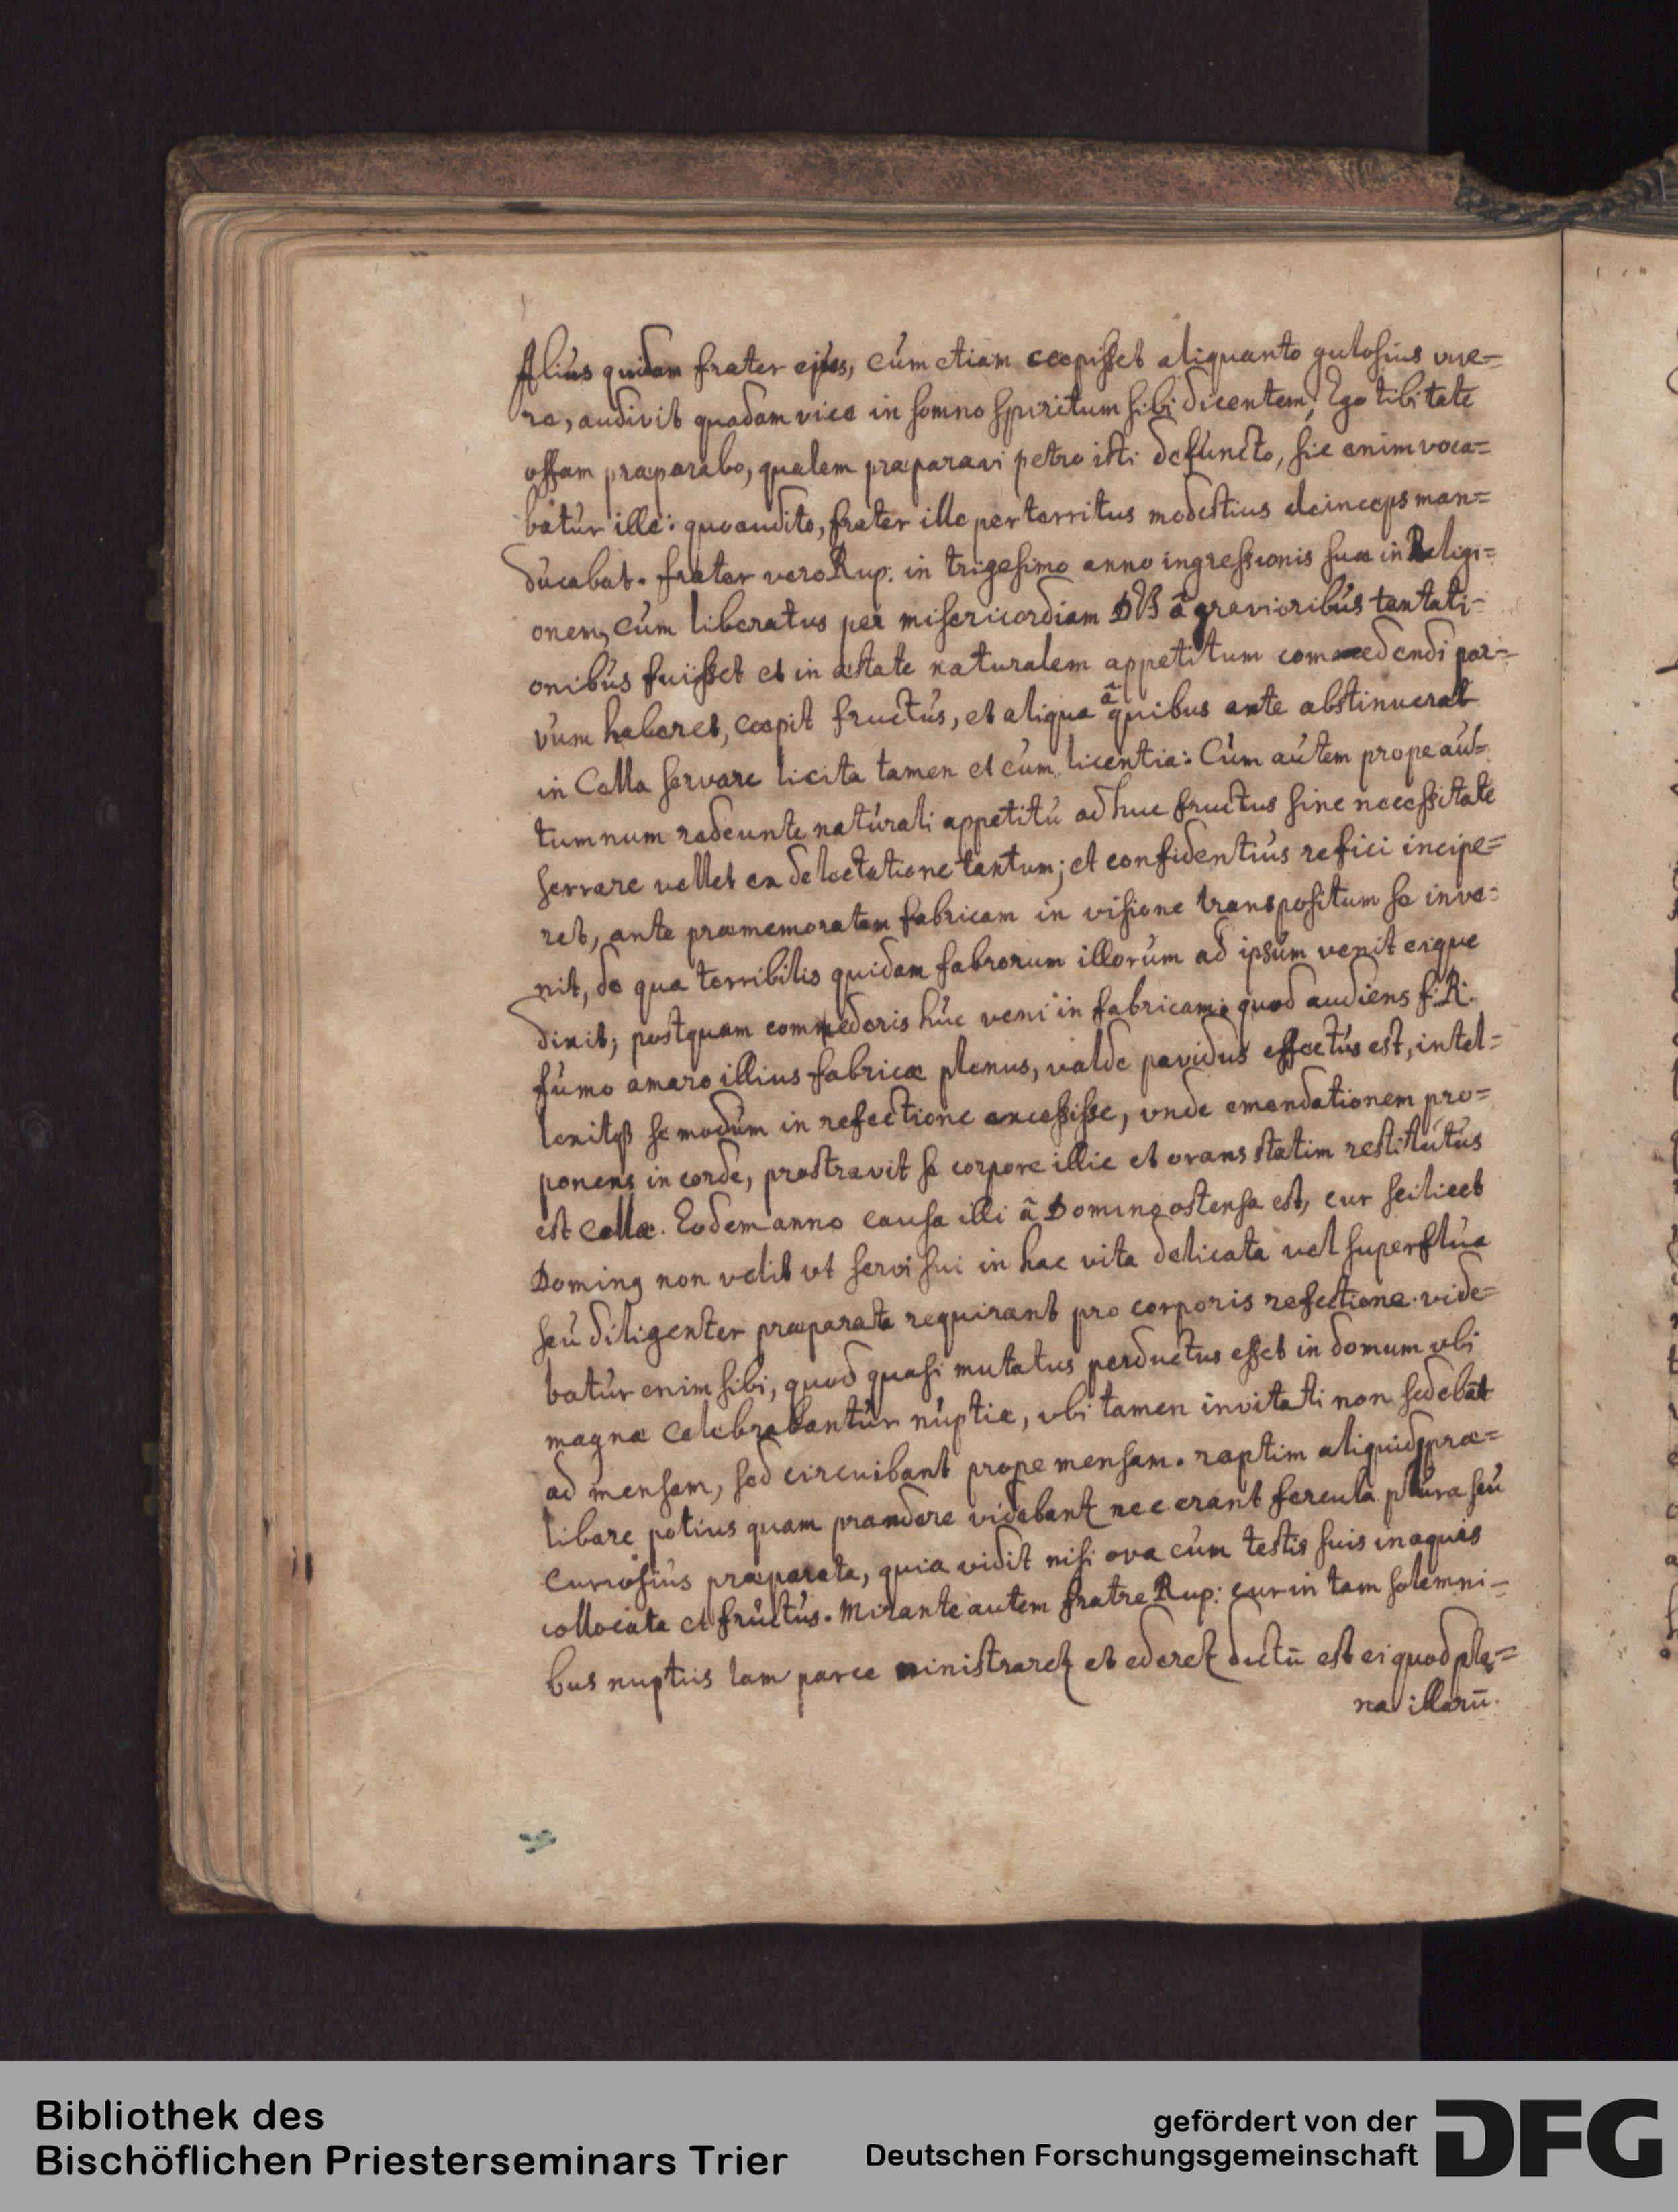 Alius quidam frater ejus, cum etiam coepisset aliquanto gulosius vive=
re, audivit quadam vice in somno spiritum sibi dicentem; Ego tibi tale
offam præparabo, qualem præparavi petro isti defuncto, sic enim voca=
batur ille: quo audito, frater ille perterritus modestius deinceps man=
ducabat. frater vero Rup: in trigesimo anno ingressionis suæ in Religi=
onem, cum liberatus per misericordiam DEI à gravioribus tentati=
onibus fuisset et in æstate naturalem appetitum commedendi par=
vum haberet, coepit fructus, et aliqua à quibus ante abstinuerat
in Cella servare licita tamen et cum licentia: Cum autem prope au=
tumnum redeunte naturali appetitu adhuc fructus sine necessitate
servare vellet ex delectatione tantum; et confidentius refici incipe=
ret, ante præmemoratam fabricam in visione transpositum se inve=
nit, de qua terribilis quidam fabrorum illorum ad ipsum venit eique
dixit; postquam commederis huc veni in fabricam: quod audiens f: R:
fumo amaro illius fabricæ plenus, valde pavidus effectus est, intel=
lexitqz se modum in refectione excessisse, vnde emendationem pro=
ponens in corde, prostravit se corpore illic et orans statim restitutus
est cellæ. Eodem anno causa illi à Domino ostensa est, cur scilicet
Dominꝰ non velit vt servi sui in hac vita delicata vel superflua
seu diligenter præparata requirant pro corporis refectione. vide=
batur enim sibi, quod quasi mutatus perductus esset in domum vbi
magnæ celebrabantur nuptiæ, vbi tamen invitati non sedebāt
ad mensam, sed circuibant prope mensam. raptim aliquid præ=
libare potius quam prandere videbant nec erant fercula plura seu
curiosius præparata, quia vidit nisi ova cum testis suis in aquis
collocata et fructus. Mirante autem fratre Rup: cur in tam solemni=
bus nuptiis tam parce ministraret et ederet dictū est ei quod ple=
na illarū.
Bibliothek des
Bischöflichen Priesterseminars Trier
gefördert von der
Deutschen Forschungsgemeinschaft
DFG